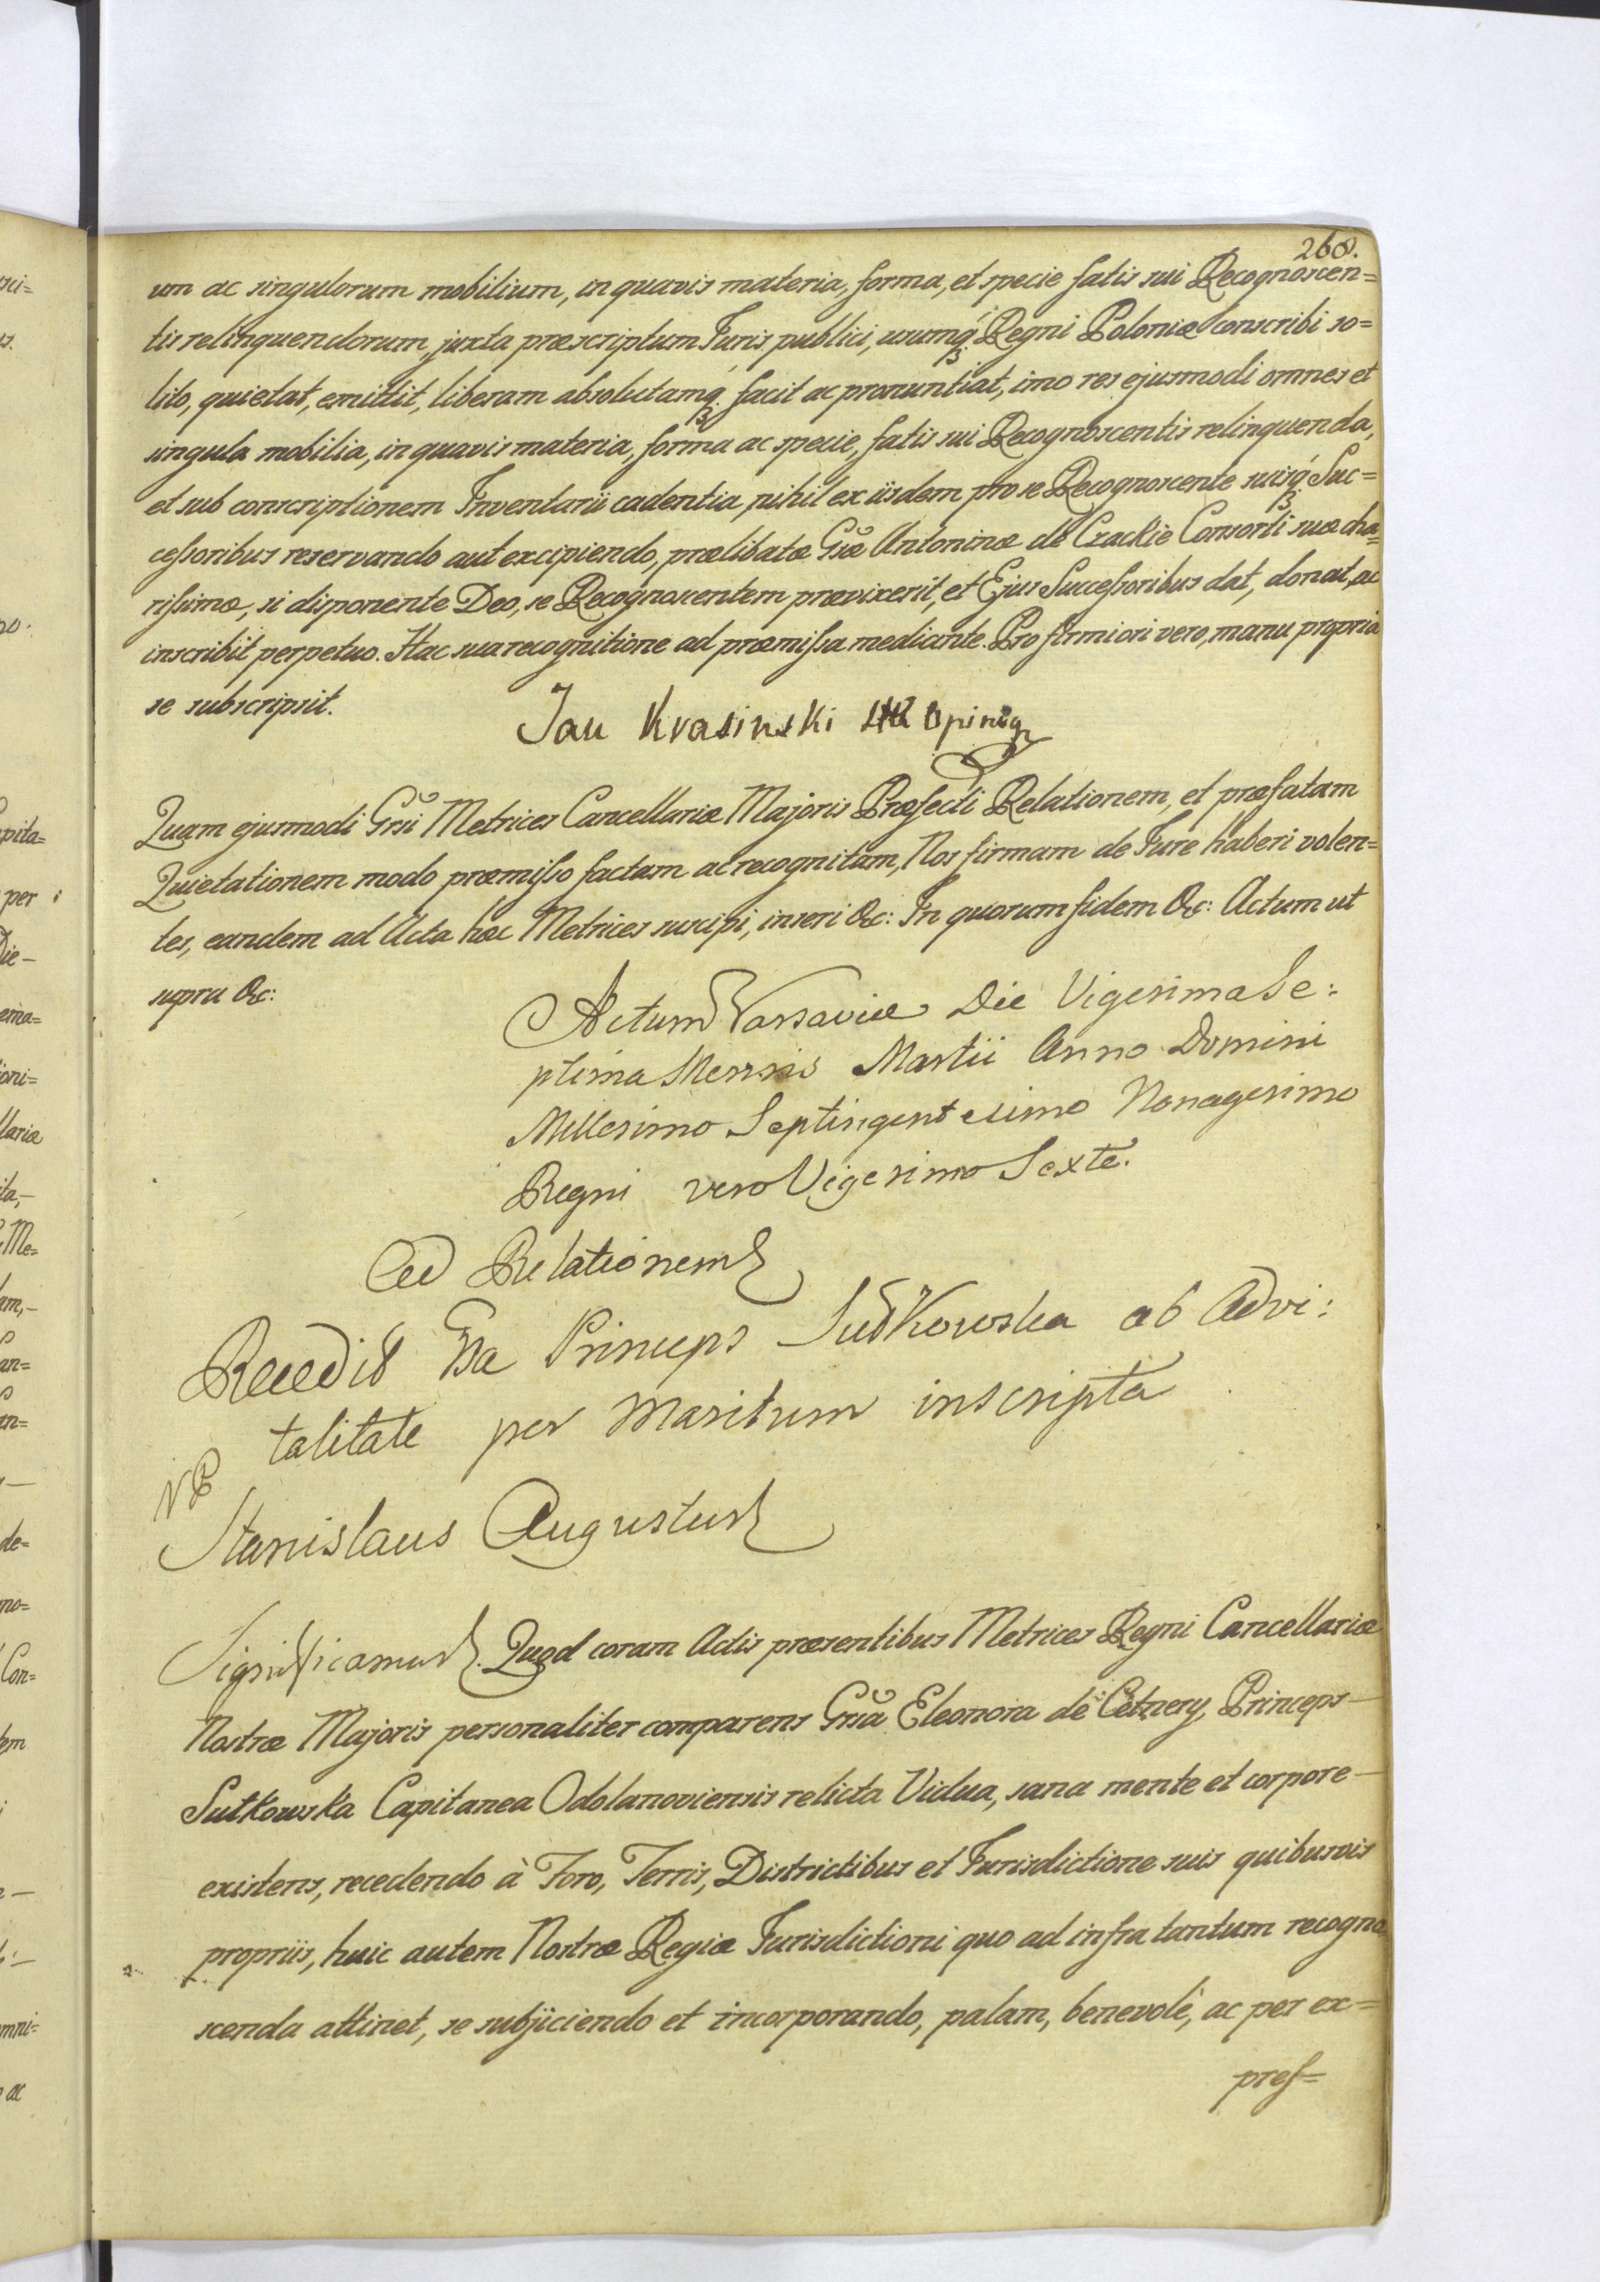 268.
um ac singulorum mobilium, in quavis materia, forma, et specie fatis sui Recognoscen=
tis relinquendorum, juxta præscriptum Juris publici, usumq́ꝫ Regni Poloniæ conscribi so=
lito, quietat, emittit, liberam absolutamq́ꝫ facit ac pronuntiat, imo res ejusmodi omnes et
singula mobilia, in quavis materia, forma ac specie, fatis sui Recognoscentis relinquenda,
et sub conscriptionem Inventarii cadentia, nihil ex iisdem pro se Recognoscente suisq́ꝫ Suc=
cessoribus reservando aut excipiendo, prælibatæ Gsæ Antoninæ de Czackie Consorti suæ cha=
rissimæ, si disponente Deo, se Recognoscentem prævixerit, et Ejus Successoribus dat, donat, ac
inscribit perpetuo. Hac sua recognitione ad præmissa mediante. Pro firmiori vero, manu propria
se subscripsit.
Jan Krasinski
Quam ejusmodi Grsi Metrices Cancellariæ Majoris Præfecti Relationem, et præfatam
Quietationem modo præmisso factam ac recognitam, Nos firmam de Jure haberi volen=
tes, eandem ad Acta hæc Metrices suscipi, inseri &c: In quorum fidem &c: Actum ut
supra &c:
Actum Varsaviæ Die Vigesima Se:
ptima Mensis Martii Anno Domini
Millesimo Septingentesimo Nonagesimo
Regni vero Vigesimo Sexto.
Ad Relationem
Recedit Gsa Princeps Sudkowska ab Advi:
talitate per Maritum inscripta
NB
Stanislaus Augustus
Significamus. Quod coram Actis præsentibus Metrices Regni Cancellariæ
Nostræ Majoris personaliter comparens Grsa Eleonora de Cetnery, Princeps
Sutkowska Capitanea Odolanoviensis relicta Vidua, sana mente et corpore
existens, recedendo à Foro, Terris, Districtibus et Jurisdictione suis quibusvis
propriis, huic autem Nostræ Regiæ Jurisdictioni quo ad infra tantum recogno
scenda attinet, se subjiciendo et incorporando, palam, benevolè, ac per ex=
pres=